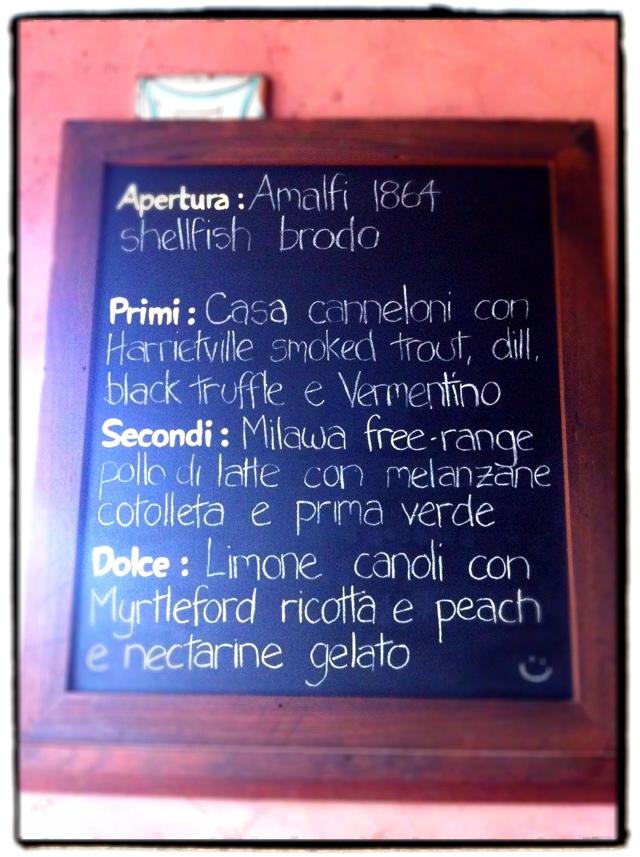 Apertura : Amalfi 1864
shellfish brodo
Primi : Casa canneloni con
Harrietville smoked trout, dill,
black truffle e Vermentino
Secondi : Milawa free-range
pollo di latte con melanzane
cotolleta e prima verde
Dolce : Limone canoli con
Myrtleford ricotta e peach
e nectarine gelato